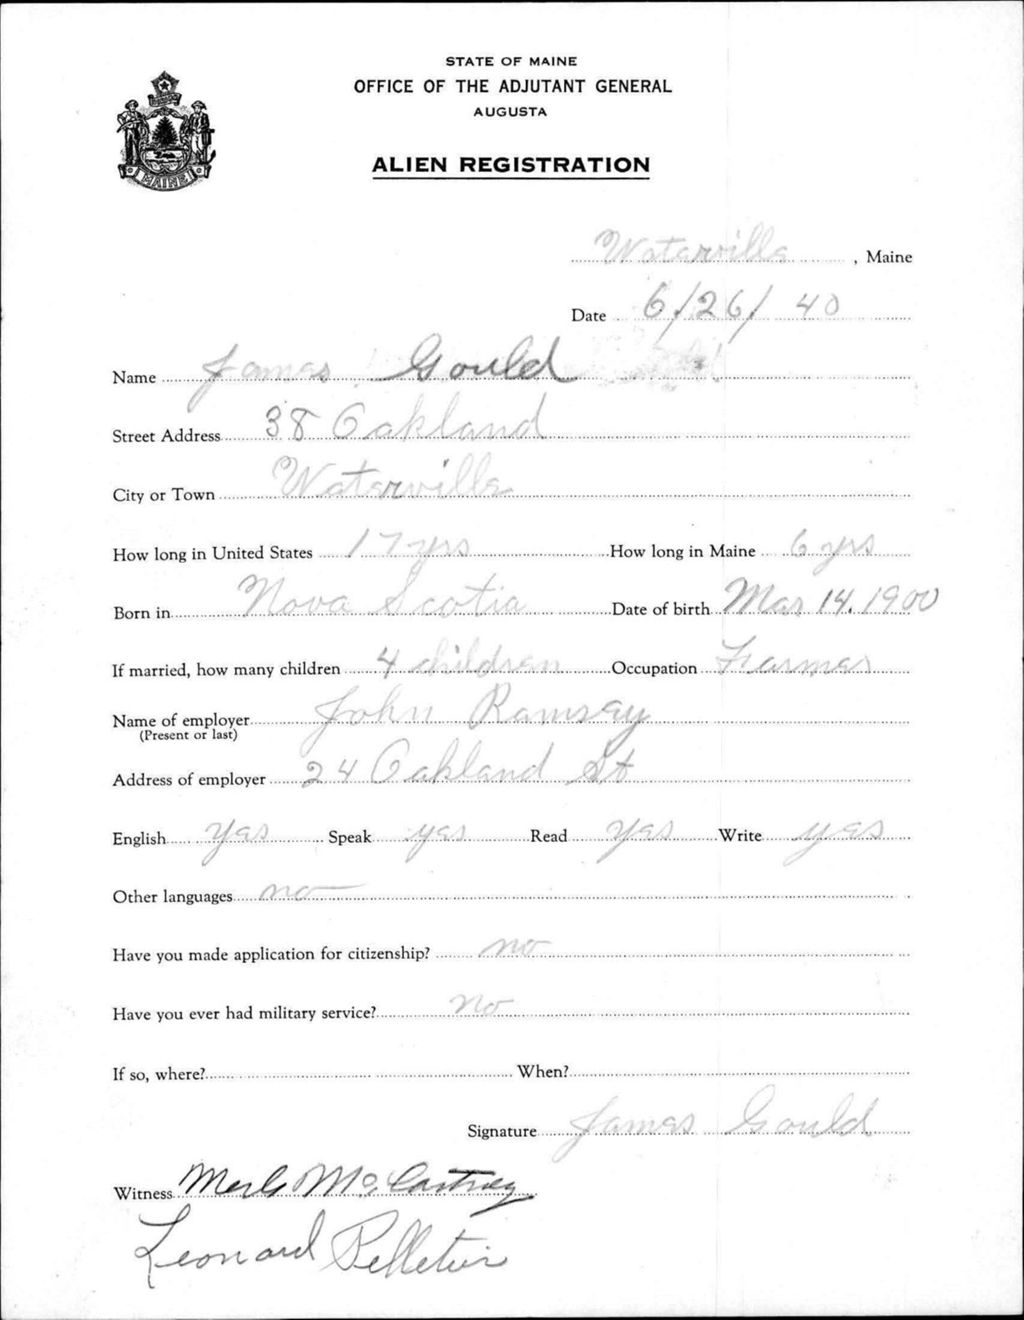 STATE OF MAINE
OFFICE OF THE ADJUTANT GENERAL
AUGUSTA
ALIEN REGISTRATION
MAINE
Waterville, Maine
Date 6/26/40
Name James Gould
Street Address 38 Oakland
City or Town Waterville
How long in United States 17 yrs How long in Maine 6 yrs
Born in Nova Scotia Date of birth Mar 14. 1900
If married, how many children 4 children Occupation Farmer
Name of employer John Ramsey
(Present or last)
Address of employer 24 Oakland St
English yes Speak yes Read yes Write yes
Other languages no
Have you made application for citizenship? no
Have you ever had military service? No
If so, where? When?
Signature James Gould
Witness Merle McCartney
Leonard Pelletier